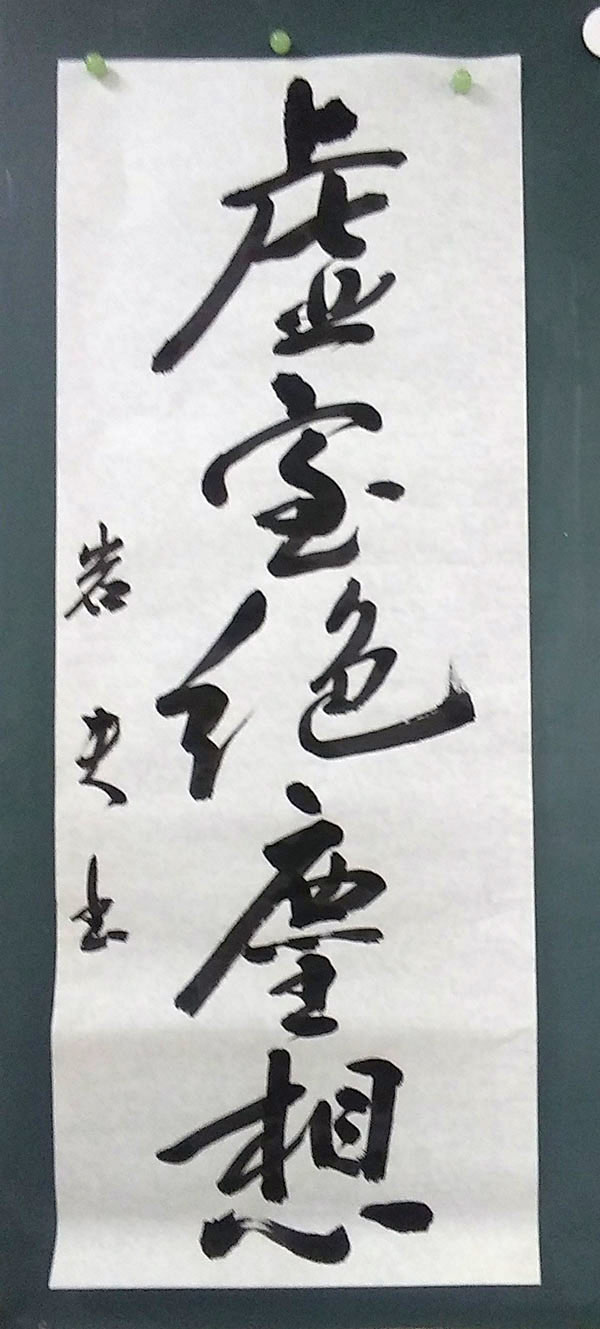 虚室絶塵想
岩夫書